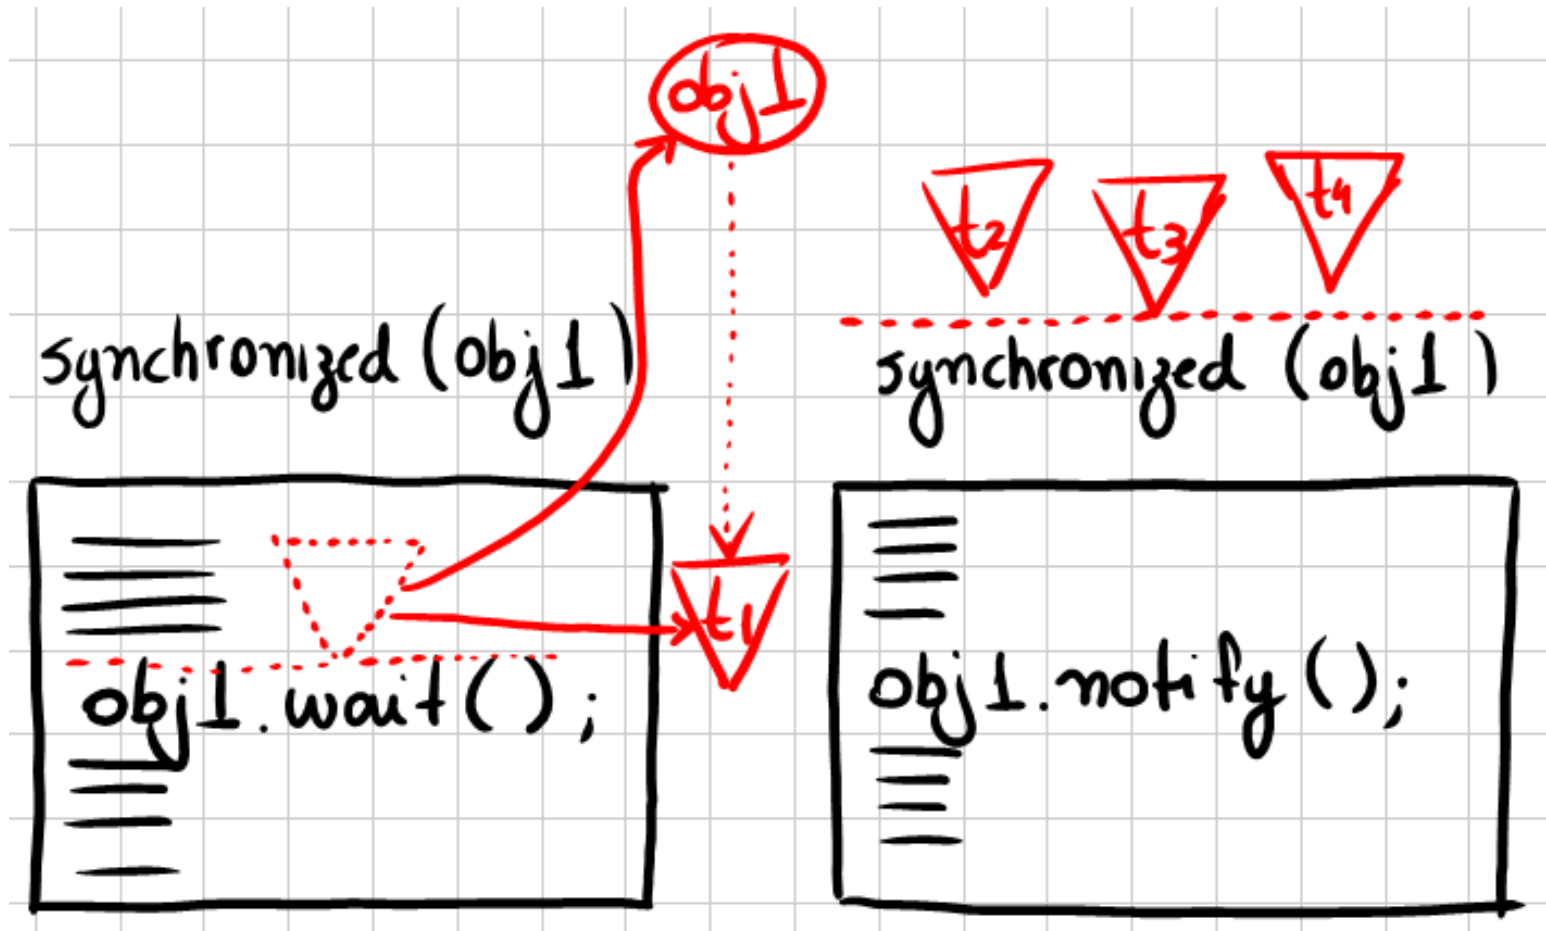 obj1
t2
t3
t4
synchronized (obj1)
synchronized (obj1)
t1
obj1.wait();
obj1.notify();